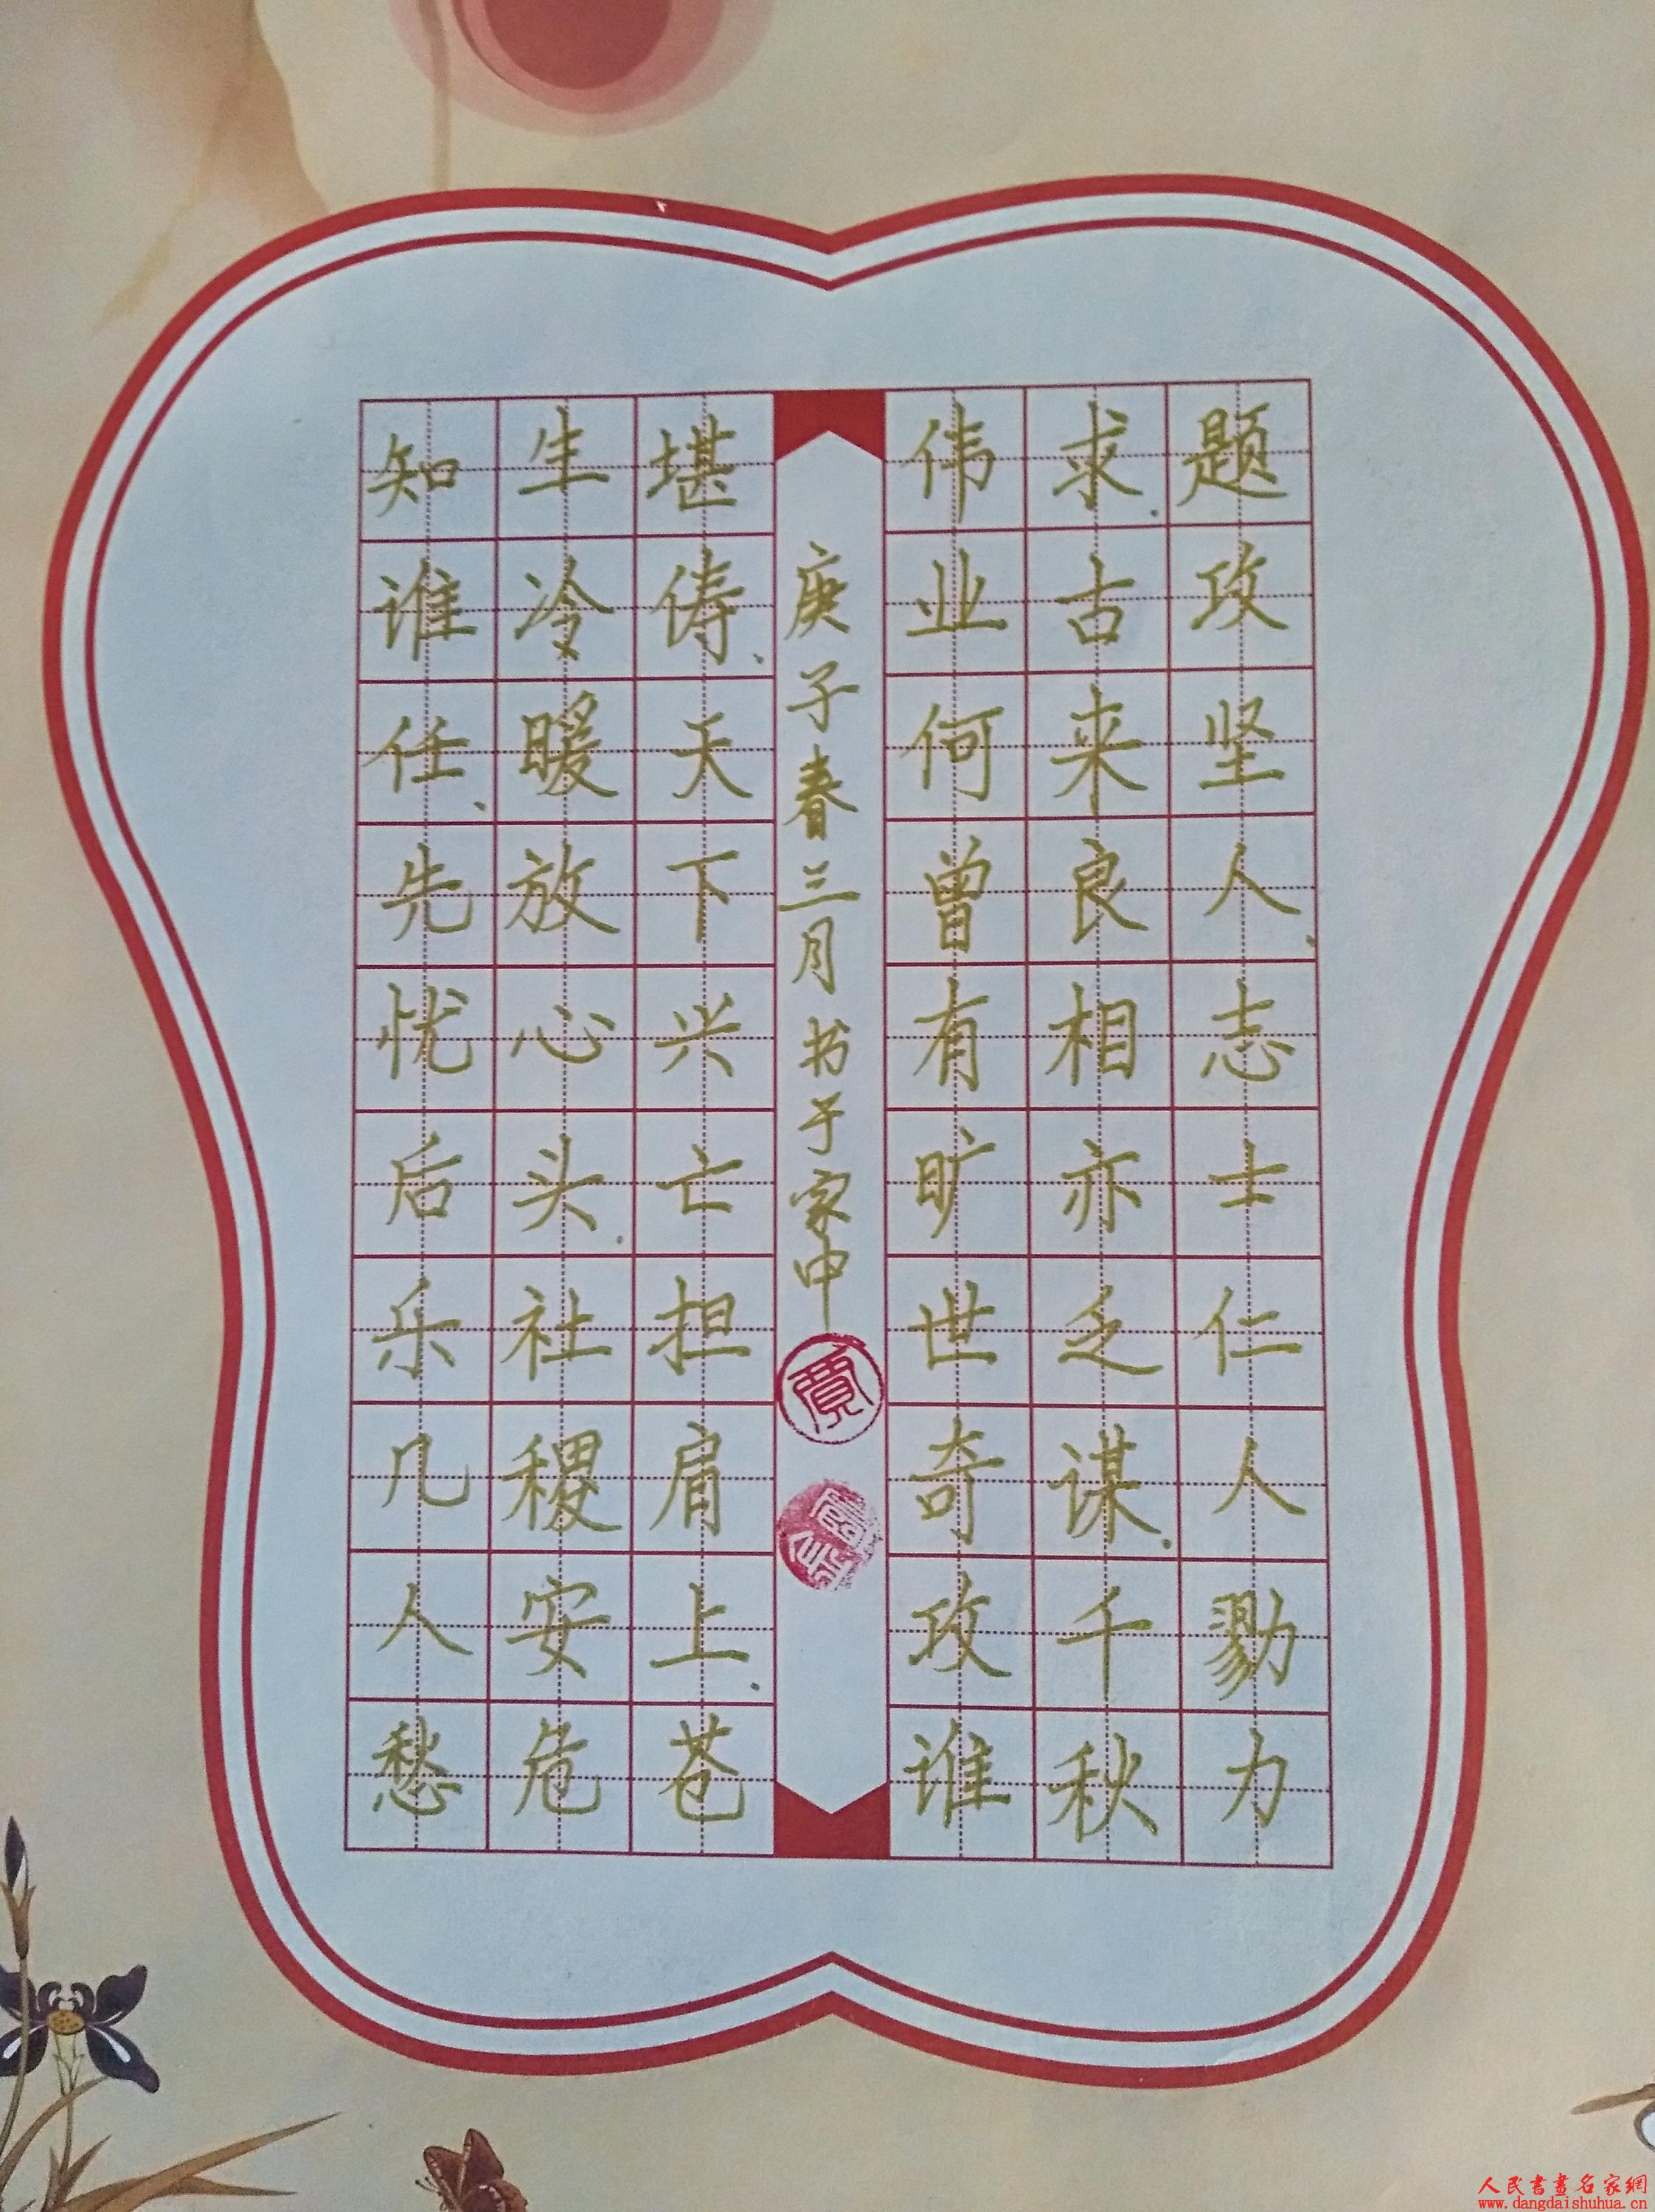 题攻坚人.志士仁人勠力
求.古来良相亦乏谋.千秋
伟业何曾有旷世奇攻谁
庚子春三月书于家中
堪俦.天下兴亡担肩上.苍
生冷暖放心头.社稷安危
知谁任.先忧后乐几人愁
人民書畫名家網
www.dangdaishuhua.cn